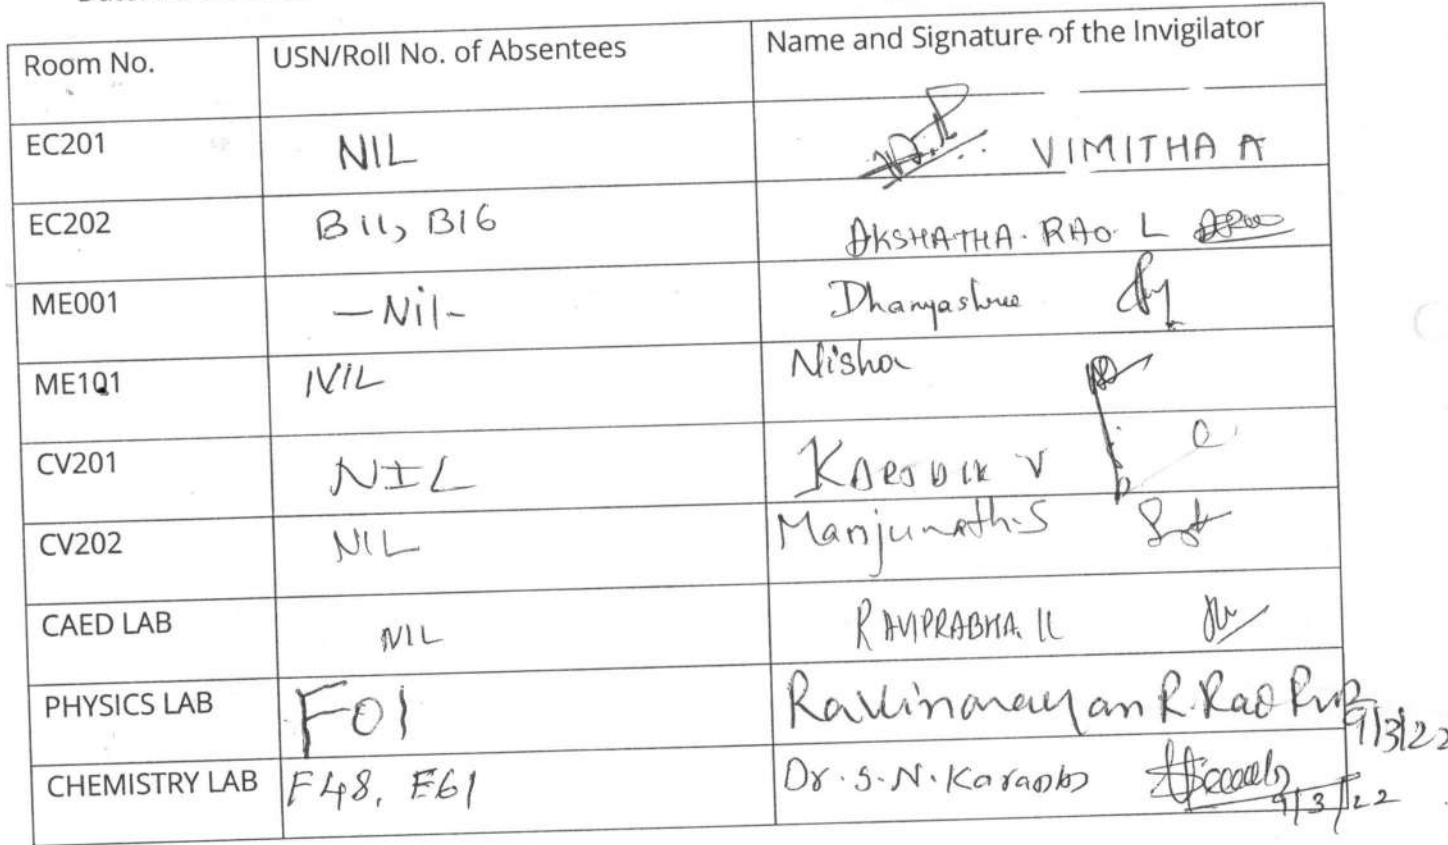 Room No. USN/Roll No. of Absentees Name and Signature of the Invigilator
EC201 NIL VIMITHA A
EC202 B11, B16 AKSHATHA. RAO. L
ME001 —Nil- Dhanyashree
ME101 NIL Nisha
CV201 NIL V
CV202 NIL Manjunath.S
CAED LAB NIL RAVIPRABHA.
PHYSICS LAB F01 Ravinarayan R. Rao 9/3/22
CHEMISTRY LAB F48, E61 Dr. S. N. 9/3/22